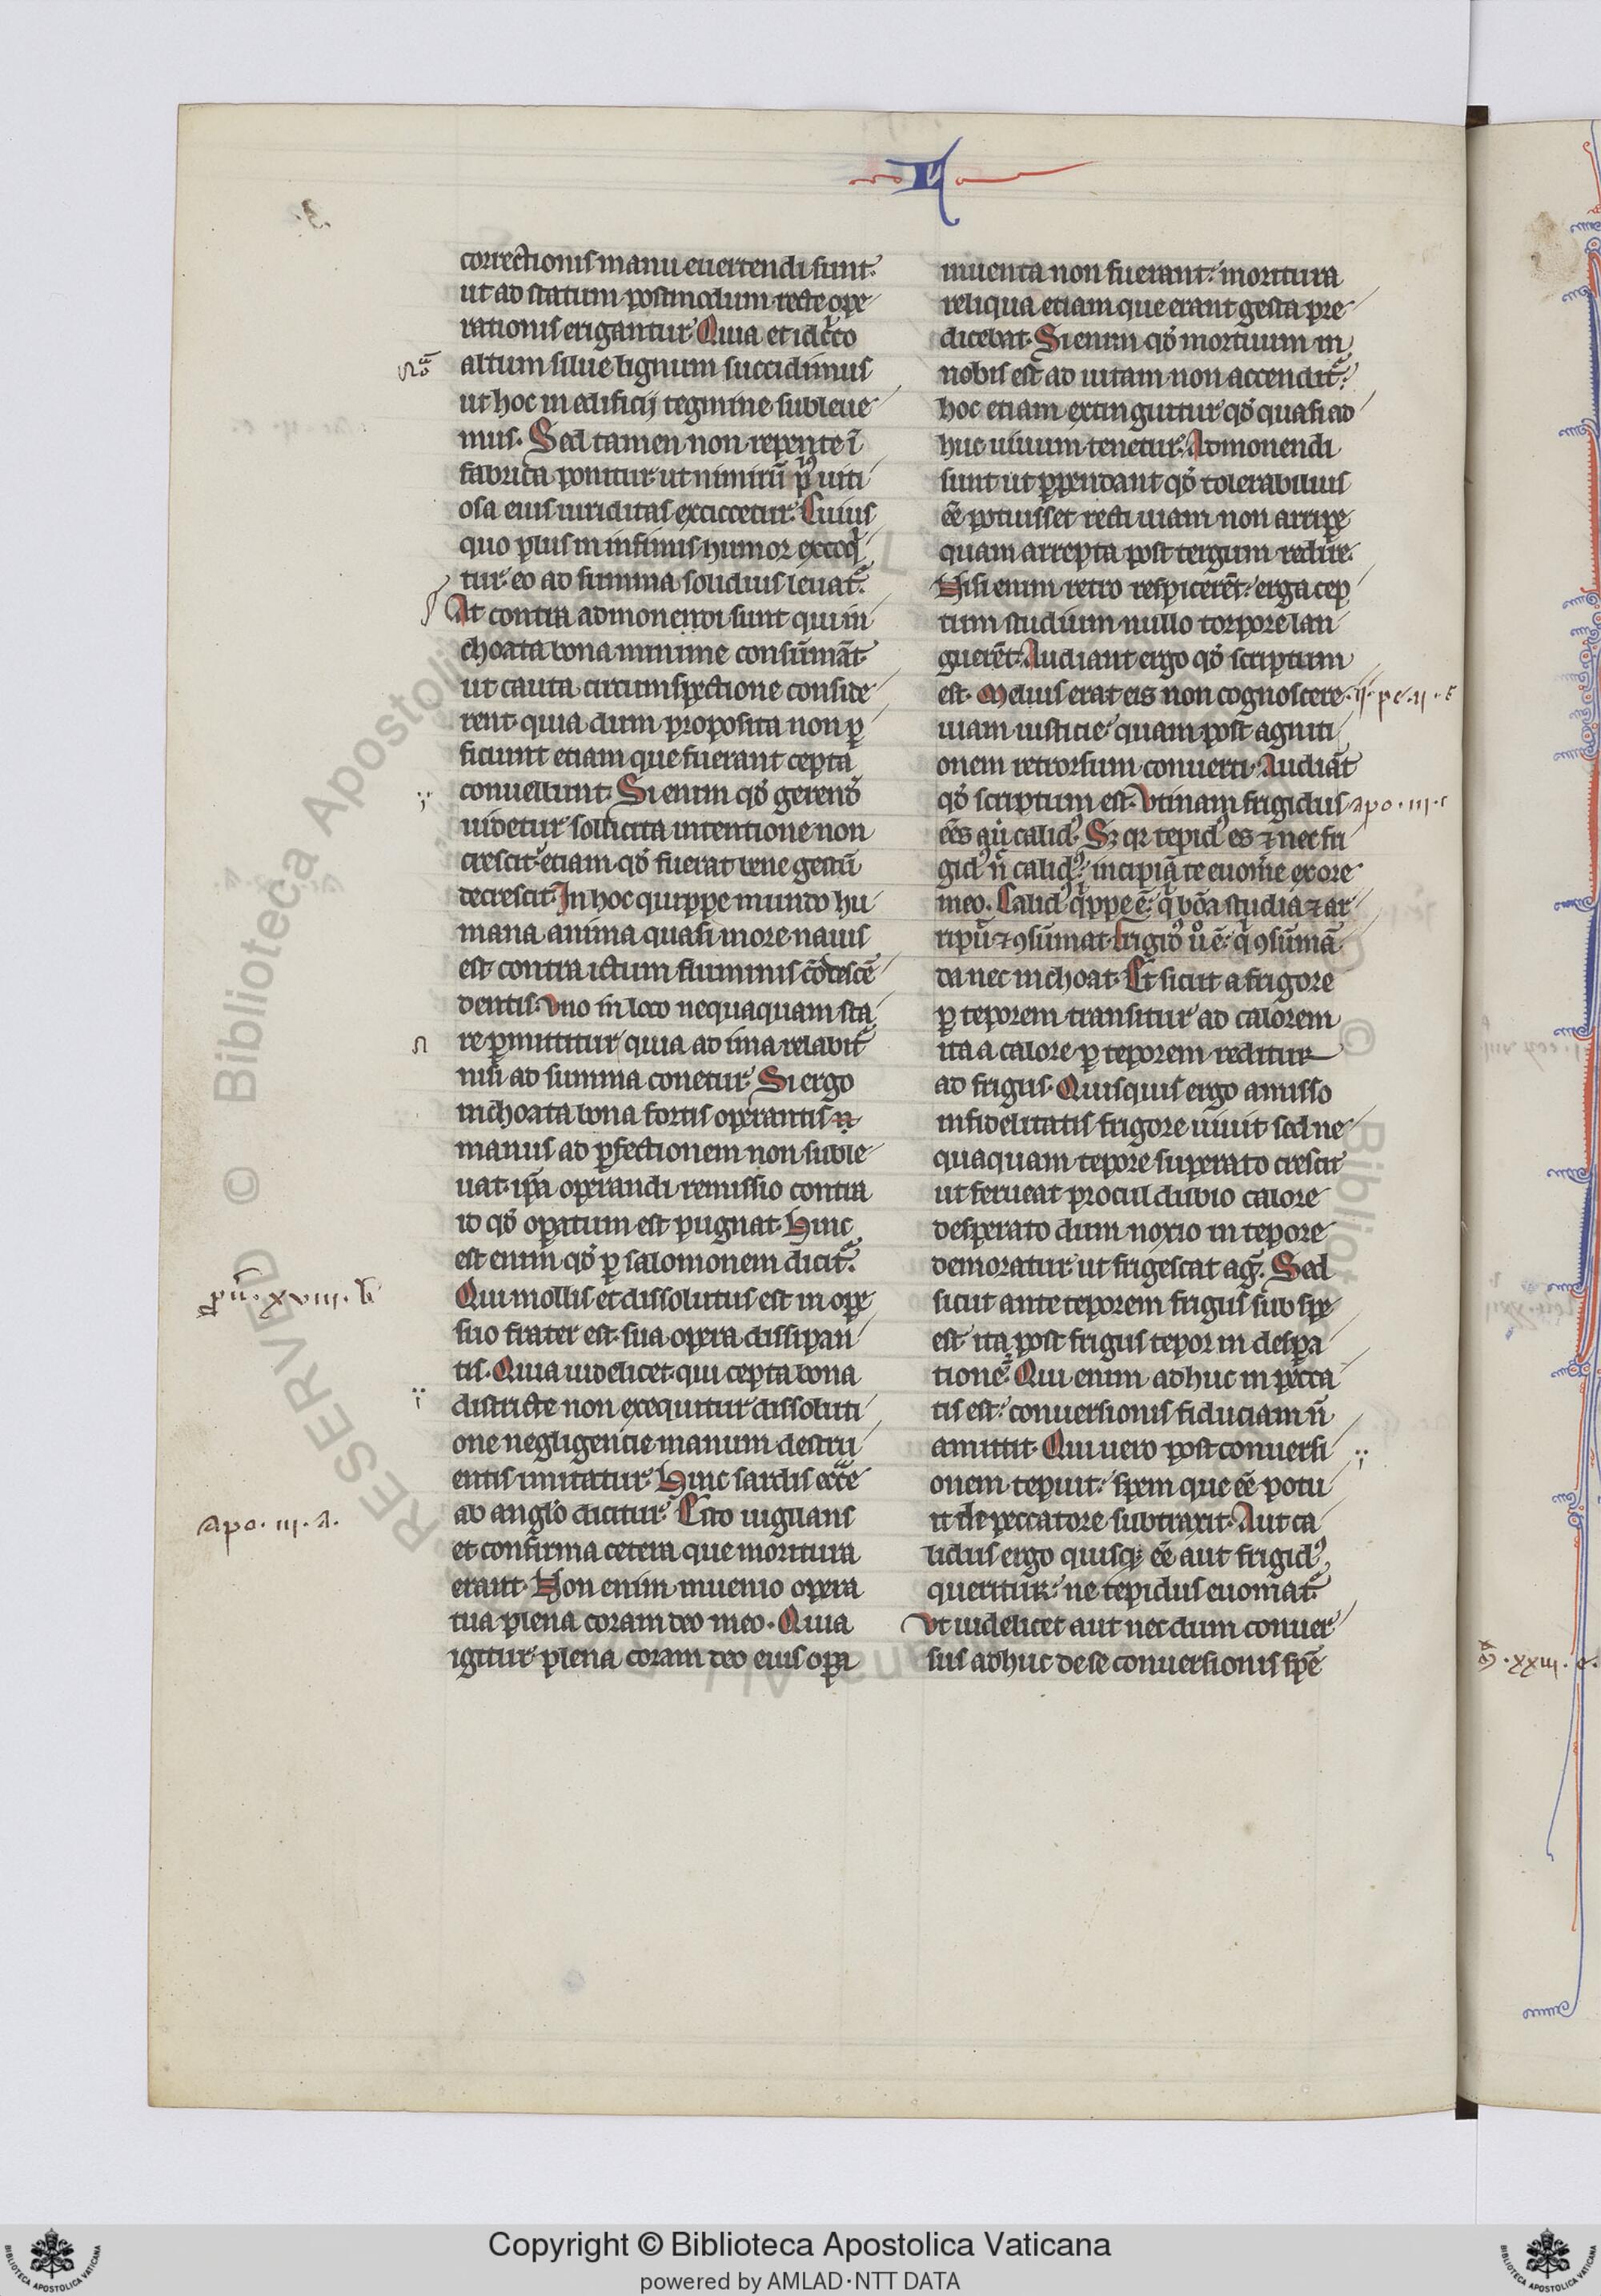 correctionis manu euertendi sunt.
ut ad statum postmodum recte ope
rationis erigantur. Quia et idcͥrco
altum silue lignum succidimus
ut hoc in edificij tegmine subleue
mus. Sed tamen non repente ī
fabrica ponitur. ut nimirū pͥus uiti
osa eius uiriditas exciccetur. Cuius
quo plus in infimis humor excoqͥ
tur. eo ad summa solidius leuat᷑.
At contra admonendi sunt qui in
choata bona minime consūmāt.
ut cauta circumspectione conside
rent. quia dum proposita non ꝑ
ficiunt etiam que fuerant cepta
conuellunt. Si enim qđ gerendū
uidetur sollicita intentione non
crescit. etiam qđ fuerat bene gestū
decrescit. In hoc quippe mundo hu
mana anima quasi more nauis
est contra ictum fluminis cōdescē
dentis. Uno in loco nequaquam sta
re ꝑmittitur quia ad ima relabit᷑
nisi ad summa conetur. Si ergo
inchoata bona fortis operantis n
manus ad ꝑfectionem non suble
uat. ip̄a operandi remissio contra
id qđ opatum est pugnat. Hinc
est enim qđ ꝑ salomonem dicit᷑.
pͬu. xviii. b
Qui mollis et dissolutus est in ope
suo frater est sua opera dissipan
tis. Quia uidelicet qui cepta bona
districte non exequitur dissoluti
one negligentie manum destru
entis imitatur. Hinc sardis ecc̄e
apo. iii. a.
ab angl̄o dicitur. Esto uigilans
et confirma cetera que moritura
erant. Non enim inuenio opera
tua plena coram deo meo. Quia
igitur plena coram deo eius opa
inuenta non fuerant. moritura
reliqua etiam que erant gesta pre
dicebat. Si enim qđ mortuum in
nobis est ad uitam non accendit᷑.
hoc etiam extinguitur qđ quasi ad
huc uiuum tenetur. Admonendi
sunt ut ꝑpendant qđ tolerabilius
eē potuisset recti uiam non arripe
quam arrepta post tergum redire.
Nisi enim retro respicerēt. erga cep
tum studium nullo torpore lan
guerēt. Audiant ergo qđ scriptum
est. Melius erat eis non cognoscere
ii. pe. ii.
uiam iusticie quam post agniti
onem retrorsum conuerti. Audiāt
qđ scriptum est. Utinam frigidus
apo. iii.
eēs aut calidꝰ. Sꝫ qr tepidꝰ es ⁊ nec fri
gidꝰ n̄ calidꝰ. incipiā te euomͤe ex ore
meo. Calidꝰ qͥppe ē. qͥ bōa studia ⁊ ar
ripū ⁊ ꝯsūmat. Frigidꝰ uͦ ē. qͥ ꝯsūmā
da nec inchoat. Et sicut a frigore
ꝑ teporem transitur ad calorem
ita a calore ꝑ teporem reditur
ad frigus. Quisquis ergo amisso
infidelitatis frigore uiuit sed ne
quaquam tepore superato crescit
ut ferueat procul dubio calore
desperato dum noxio in tepore
demoratur. ut frigescat ag᷑. Sed
sicut ante teporem frigus sub spe
est. ita post frigus tepor in despa
tione. Qui enim adhuc in pecca
tis est. conuersionis fiduciam n̄
amittit. Qui uero post conuersi
onem tepuit. spem que eē potu
it de peccatore subtraxit. Aut ca
lidus ergo quisqꝫ eē aut frigidꝰ
queritur. ne tepidus euomat᷑.
Ut uidelicet aut nec dum conuer
sus adhuc de se conuersionis spē
xxiii.
Copyright © Biblioteca Apostolica Vaticana
powered by AMLAD·NTT DATA